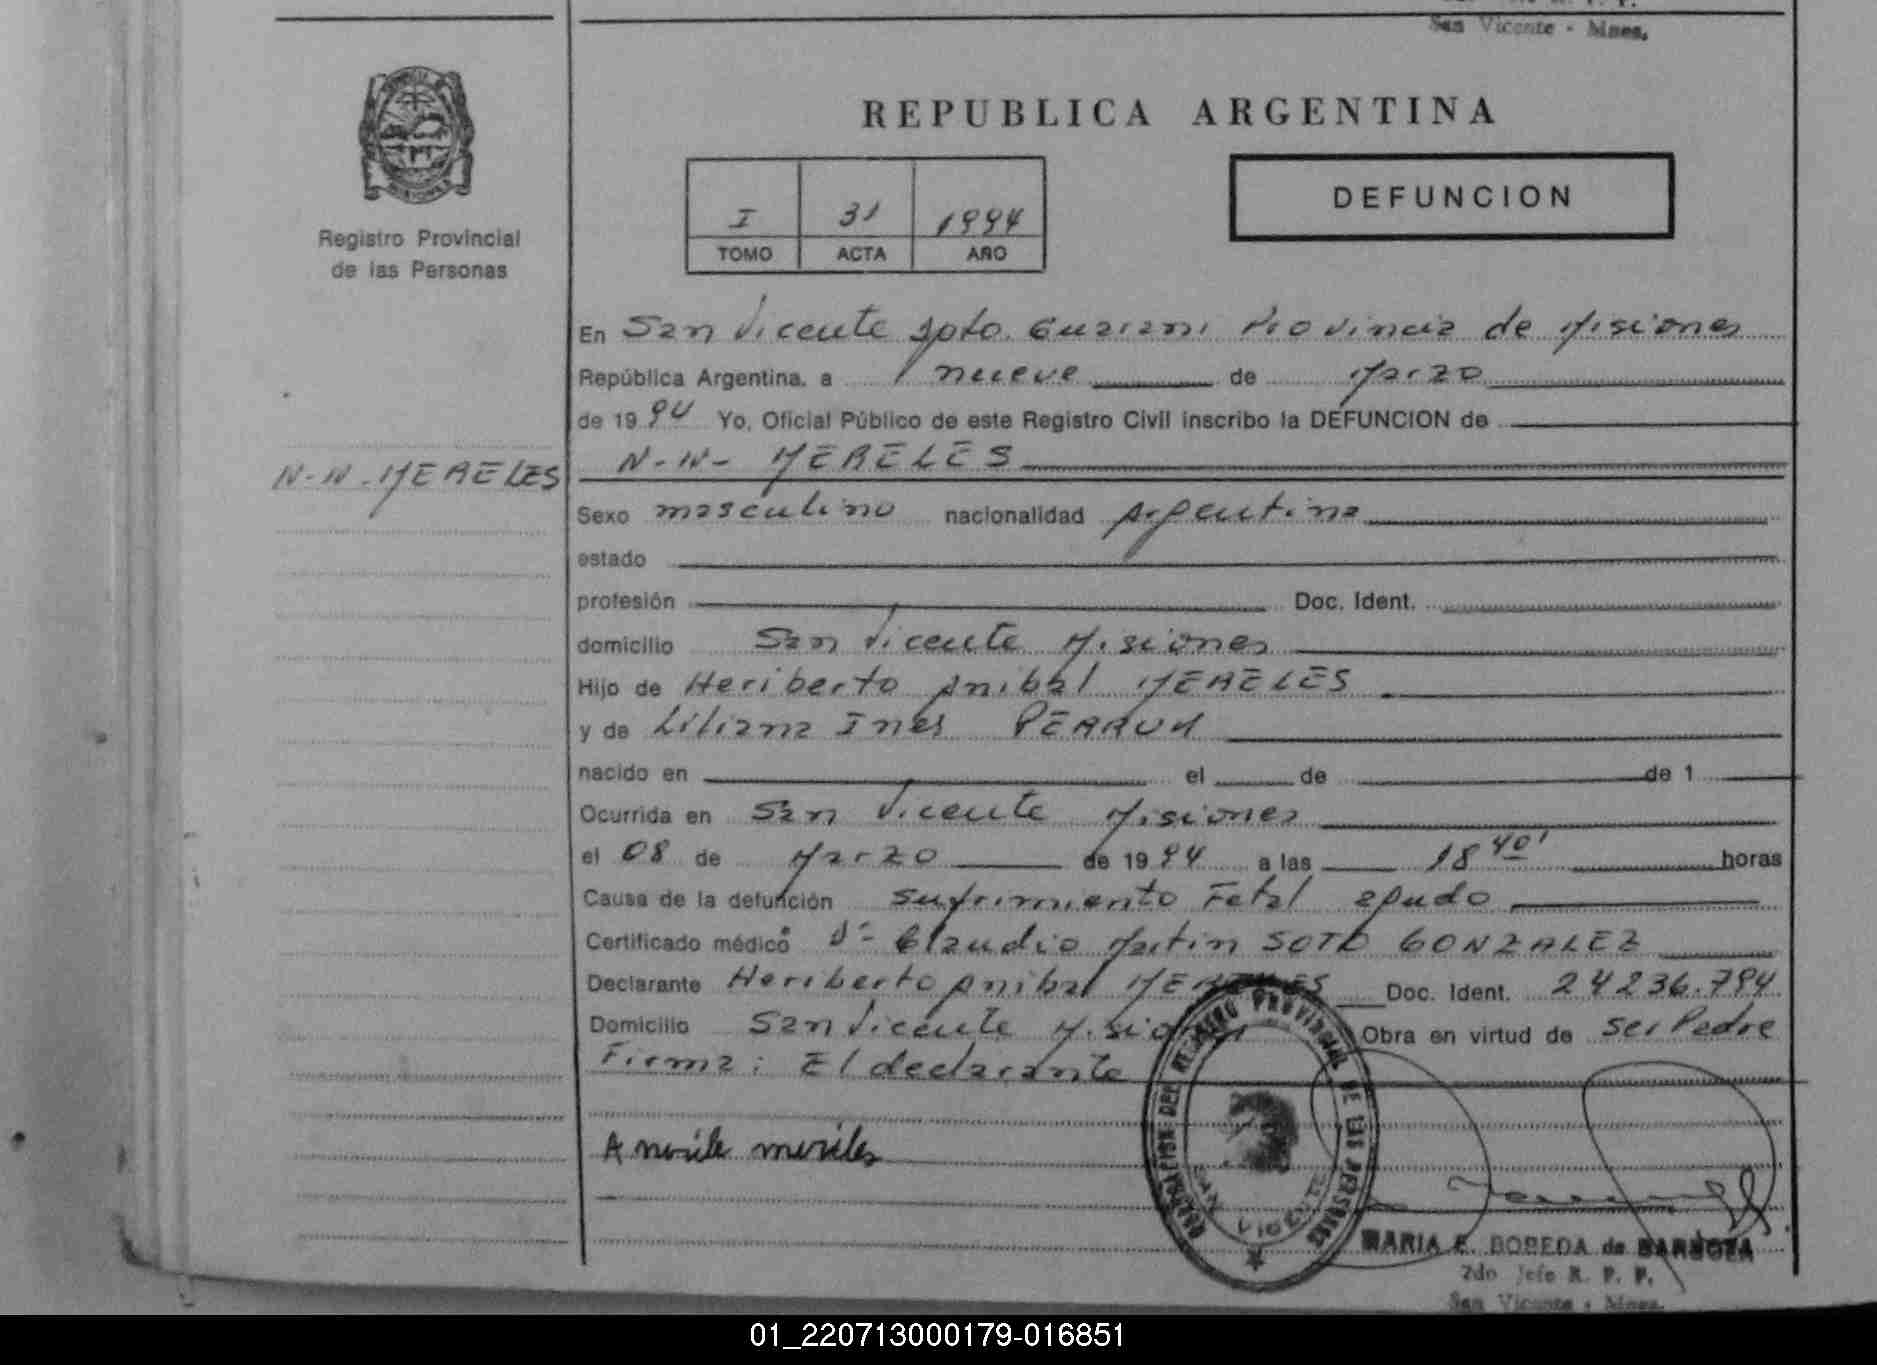 San Vicente - Mnes.
REPUBLICA ARGENTINA
DEFUNCION
I 31 1994
TOMO ACTA AÑO
Registro Provincial
de las Personas
En San Vicente Dpto. Guarani Provincia de Misiones
República Argentina, a nueve de Marzo
de 1994 Yo, Oficial Público de este Registro Civil inscribo la DEFUNCION de
N-N- MERELES
N-N-MERELES
Sexo masculino nacionalidad Argentina
estado
profesión Doc. Ident.
domicilio San Vicente Misiones
Hijo de Heriberto Anibal MERELES
y de Liliana Ines
nacido en el de de 1
Ocurrida en San Vicente Misiones
el 08 de Marzo de 1994 a las 18 40' horas
Causa de la defunción Sufrimiento Fetal agudo
Certificado médico Dr Claudio Martin SOTO GONZALEZ
Declarante Heriberto Anibal MERELES Doc. Ident. 24236.794
Domicilio San Vicente Misiones Obra en virtud de ser Padre
Firma: El declarante
meriles
DELEGACION DEL REGISTRO PROVINCIAL DE LAS PERSONAS
SAN VICENTE
MARIA E. BOBEDA de BARBOZA
2do Jefe R. P. P.
San Vicente - Mnes.
01_220713000179-016851